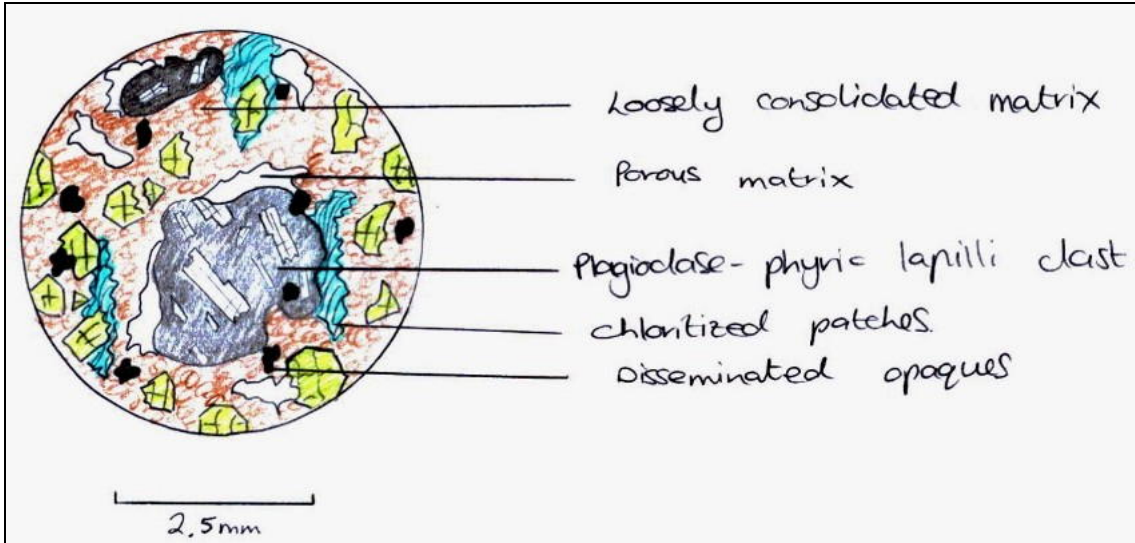 Loosely consolidated matrix
Porous matrix
Plagioclase-phyric lapilli clast
chloritized patches.
Disseminated opaques
2.5mm